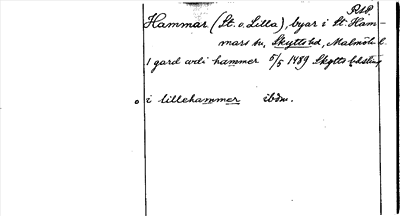 RAP.
Hammar (St. o. Lilla), byar i St. Ham-
mars sn, Skytts hd, Malmöh. l.
1 gard vdi hammer 5/5 1489 Skytts
o i lillehammer ibdm.